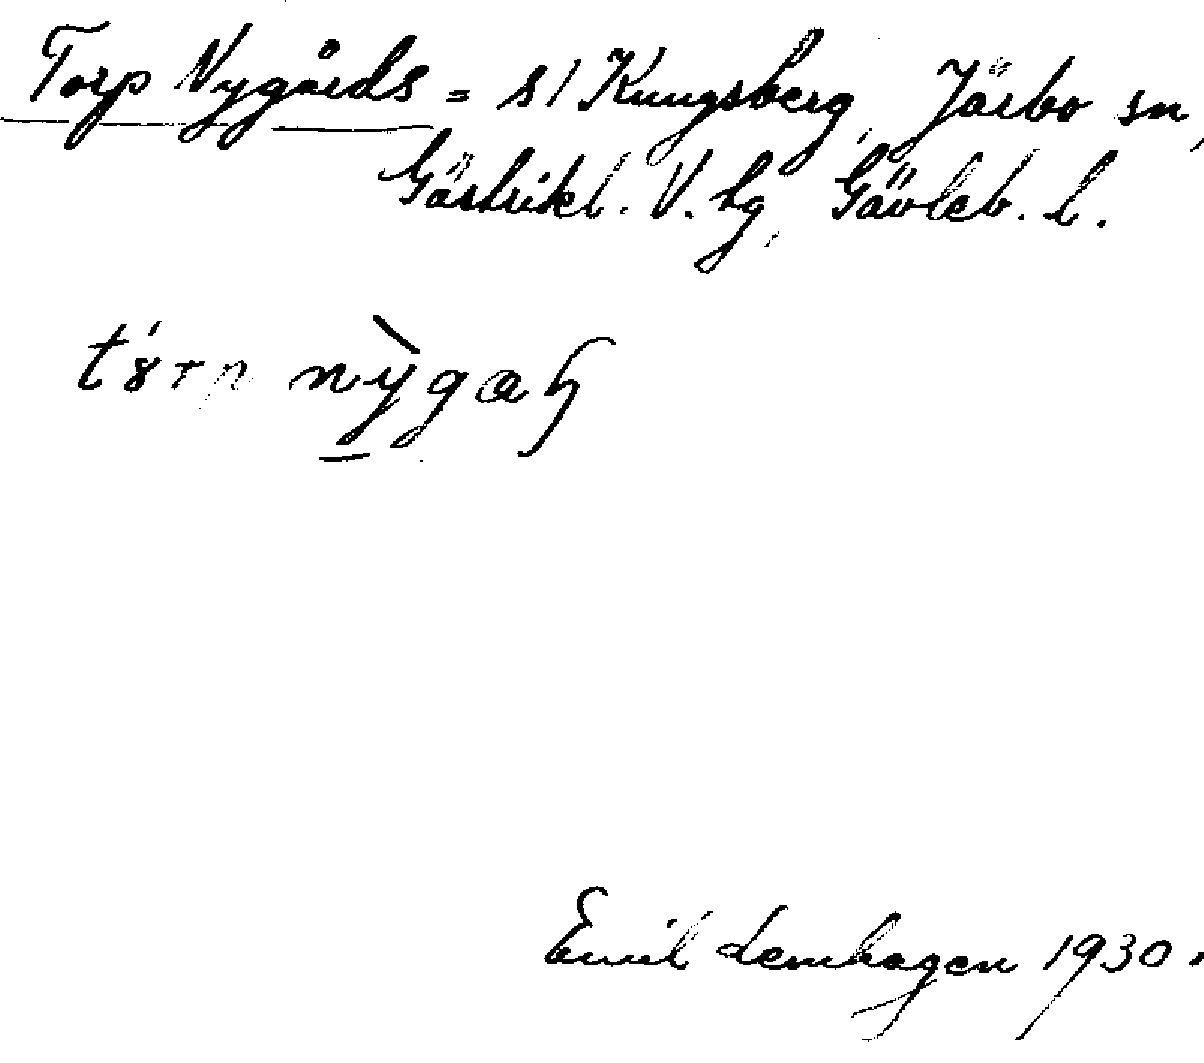 Torp Nygårds = s/ Kungsberg, Järbo sn,
Gästrikl. V. hg, Gävleb. l.
Emil Lemhagen 1930.